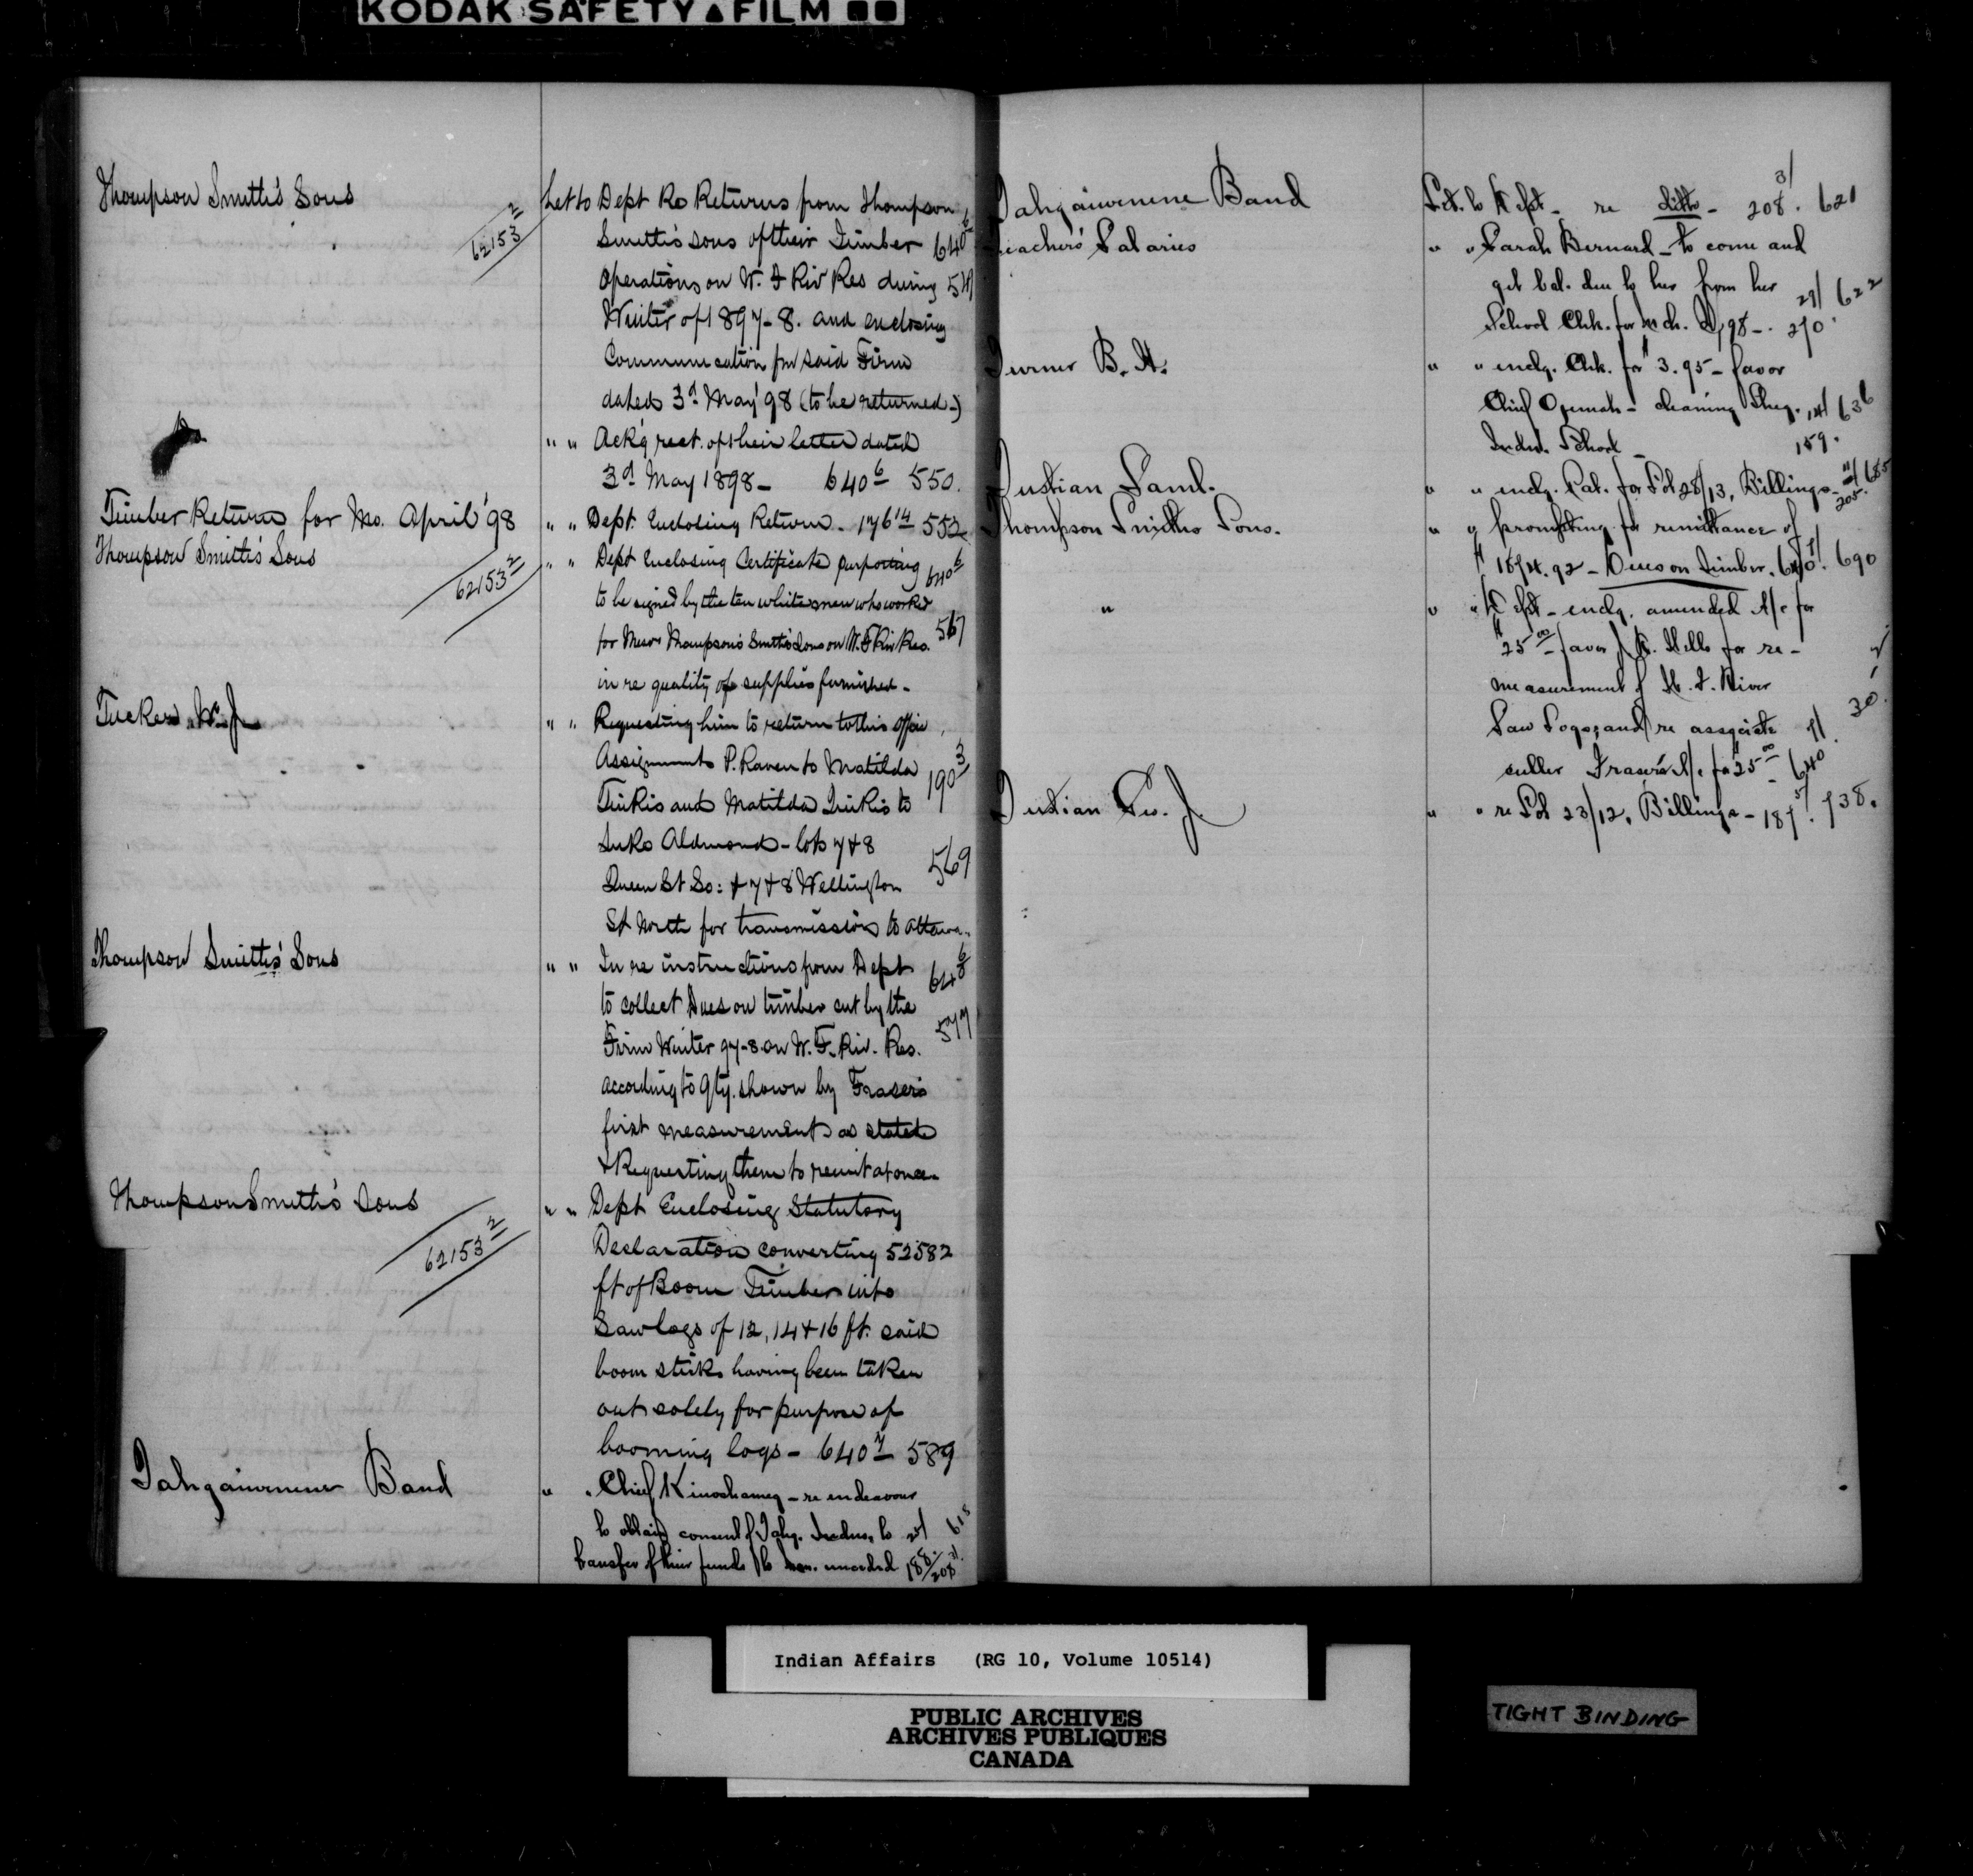 KODAK SAFETY FILM
Thompson Smith's Sons
62153 2
Let to Dept Re Returns from Thompson
Smith's Sons of their Timber 640 6
Operations on W. F Riv Res during 549
Winter of 1897-8. and enclosing
Communication fm said Firm
dated 3d May '98 (to be returned-)
" " Ack'g rect. of their letter dated
3d May 1898- 640 6 550.
Timber Return for Mo. April '98
" " Dept. Enclosing Return. 176 14 552
Thompson Smith's Sons
62153 2
" " Dept Enclosing Certificate purporting 640 6
to be signed by the ten white men who worked
for Messrs Thompson Smith's Sons on W. F Riv Res. 567
in re quality of supplies furnished-
Tucker W. J
" " Requesting him to return to this office
Assignments P. Raven to Matilda 190 3
and Matilda to
Luke Aldmond - lots 7 & 8 569
Queen St So: & 7 & 8 Wellington
St North for transmission to Ottawa.
Thompson Smith's Sons
" " In re instructions from Dept 640 6
to collect Dues on timber cut by the
Firm Winter 97-8 on W. F. Riv. Res. 577
according to qty. shown by Fraser's
first measurement as stated
& Requesting them to remit at once-
Thompson Smith's Sons
62153 2
" " Dept Enclosing Statutory
Declaration converting 52582
ft of Boom Timber into
Sawlogs of 12, 14 & 16 ft. said
boom sticks having been taken
out solely for purpose of
booming logs - 640 7 589
Tahgaiwenene Band
" " Chief Kinoshameg - re endeavour
to obtain consent of Tahg. Indns. to 25/ 615
transfer of their funds to unceded 188/208 31
Tahgaiwenene Band
Let. to Dept - re ditto - 208 31/. 621
Teachers' Salaries
" " Sarah Bernard - to come and
get bal. due to her from her
School Chk. for Mch. Q, 98 -. 270 29/. 622
Turner B. H.
" " enclg. Chk. for $3.95 - favor
Chief - cleaning Sheg. 14/ 636
Indn. School - 159.
Tustian Saml.
" " enclg. Pat. for Lot 28/13, Billings - 205 11/. 685
Thompson Smiths Sons.
" " prompting for remittance of
$1874.92 - Dues on Timber. 640 7/. 690
"
" " Dept - enclg. amended A/c for
$25 00 - favor for re-
measurement of W. F. River
Saw Logs; and re associate
culler Fraser's A/c for $25 00 - 640
730.
Tustian Geo. J.
" " re Lot 23/12, Billings - 187 5/. 738.
Indian Affairs (RG 10, Volume 10514)
PUBLIC ARCHIVES
ARCHIVES PUBLIQUES
CANADA
TIGHT BINDING